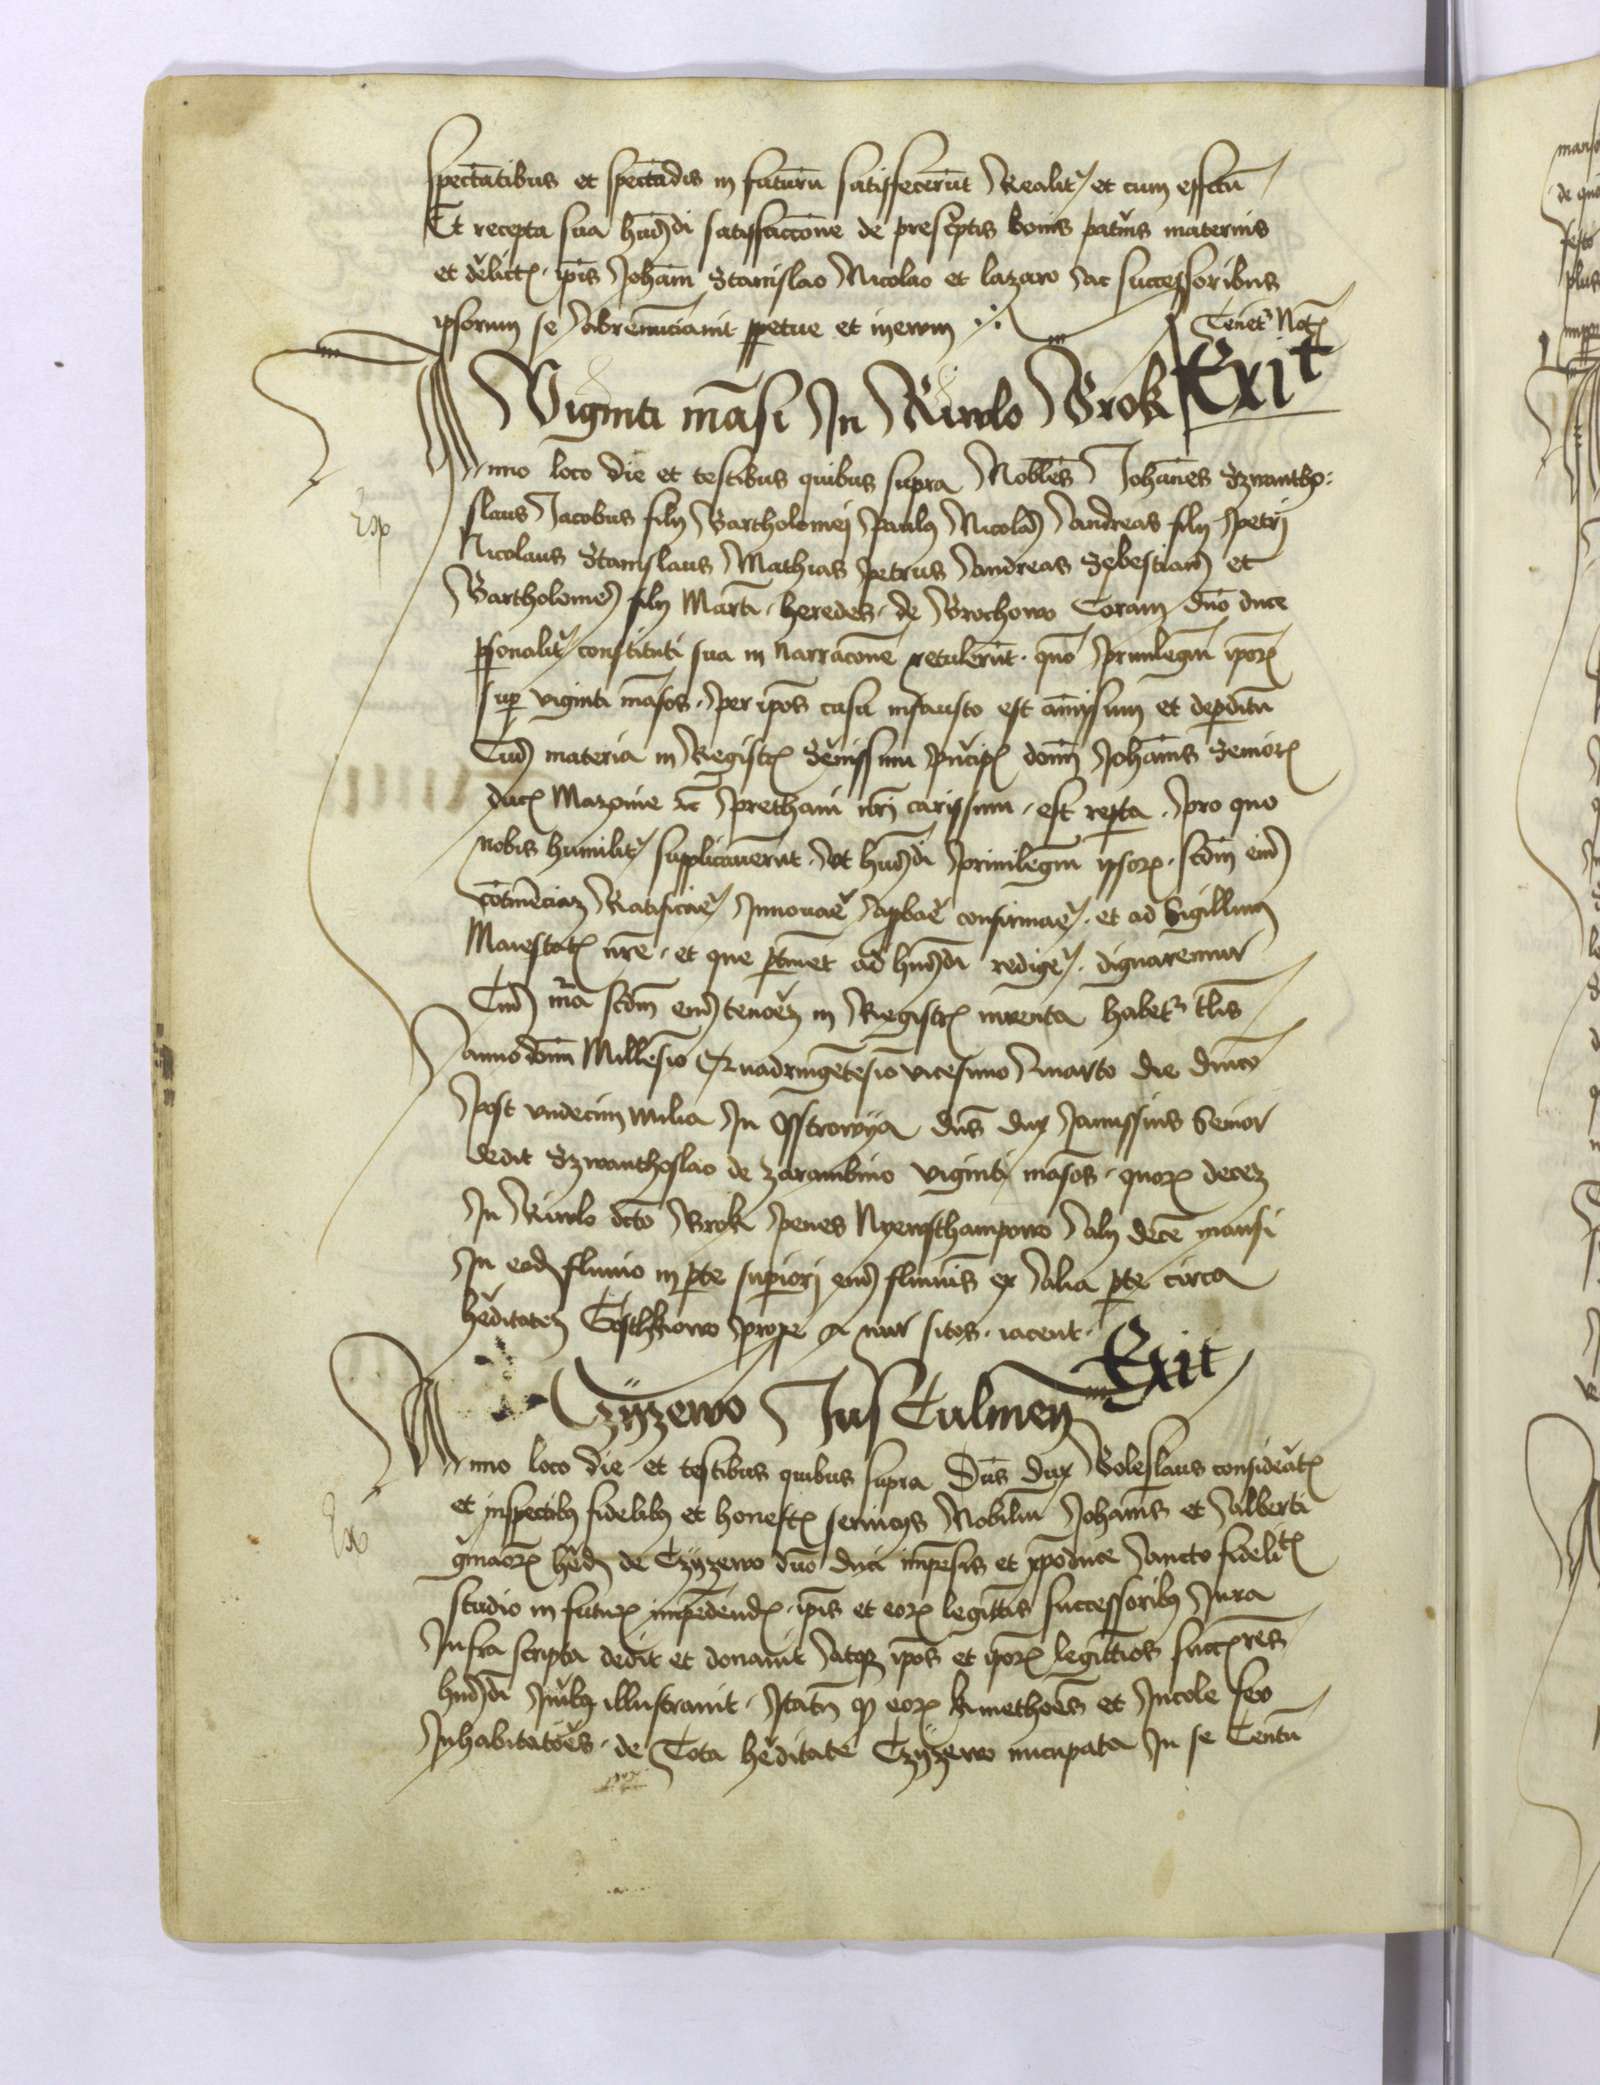 spectantibus et spectandis in futurum satisfecerunt Realiter et cum effectu
Et recepta sua huiusmodi satisfaccione de prescriptis bonis paternis maternis
et derelictis ipsis Johanni Stanislao Nicolao et lazaro ac successoribus
ipsorum se abrenunciavit perpetue et in evum
Tenetur Notario
Viginti mansi In Riwlo Brok Exit
Anno loco die et testibus quibus supra Nobiles Johannes Szwantho
slaus Jacobus filii Bartholomei Paulus Nicolaus Andreas filii Petri
Nicolaus Stanislaus Mathias Petrus Andreas Sebestianus et
Bartholomeus filii Martini heredes de Brochowo Coram domino duce
personaliter constituti sua in Narracione retulerunt quomodo privilegium ipsorum
super viginti mansos per ipsos casu infausto est amissum et deperditum
Cuius materia in Registris Serenissimi principis domini Johannis Senioris
ducis Mazovie etc prethavi nostri carissimi est reperta pro quo
nobis humiliter supplicaverunt Ut huiusmodi privilegium ipsorum secundum eius
continenciam Ratificare Innovare Approbare confirmare et ad Sigillum
Maiestatis nostre et que pertinet ad huiusmodi redigere dignaremur
Cuius materia secundum eius tenorem in Registris inventa habetur talis
Anno domini Millesimo Quadringentesimo vicesimo Quarto die dominico
Post undecim milia In Osstrowya dominus dux Janussius Senior
dedit Szwanthoslao de Zarambino viginti mansos quorum decem
In Riwlo dicto Brok penes Nyemsthampowo Alii decem mansi
In eodem fluvio in parte superiori eiusdem fluminis ex alia parte circa
hereditatem Gosthkowo prope nur sitos iacent
Exit
Czyzewo Jus Culmen
Anno loco die et testibus quibus supra Dominus Dux Boleslaus consideratis
et inspectibus fidelibus et honestis serviciis Nobilium Johannis et Alberti
germanorum heredum de Czyzewo domino duci impensis et ipso duce aucto fidelitatis
studio in futurum impendendis ipsis et eorum legittimis successoribus Jura
Infra scripta dedit et donavit Atque ipsos et ipsorum legittimos successores
huiusmodi Juribus illustravit Itatamen quod eorum kmethones et Incole seu
Inhabitatores de Tota hereditate Czyzewo nuncupata In se Centum